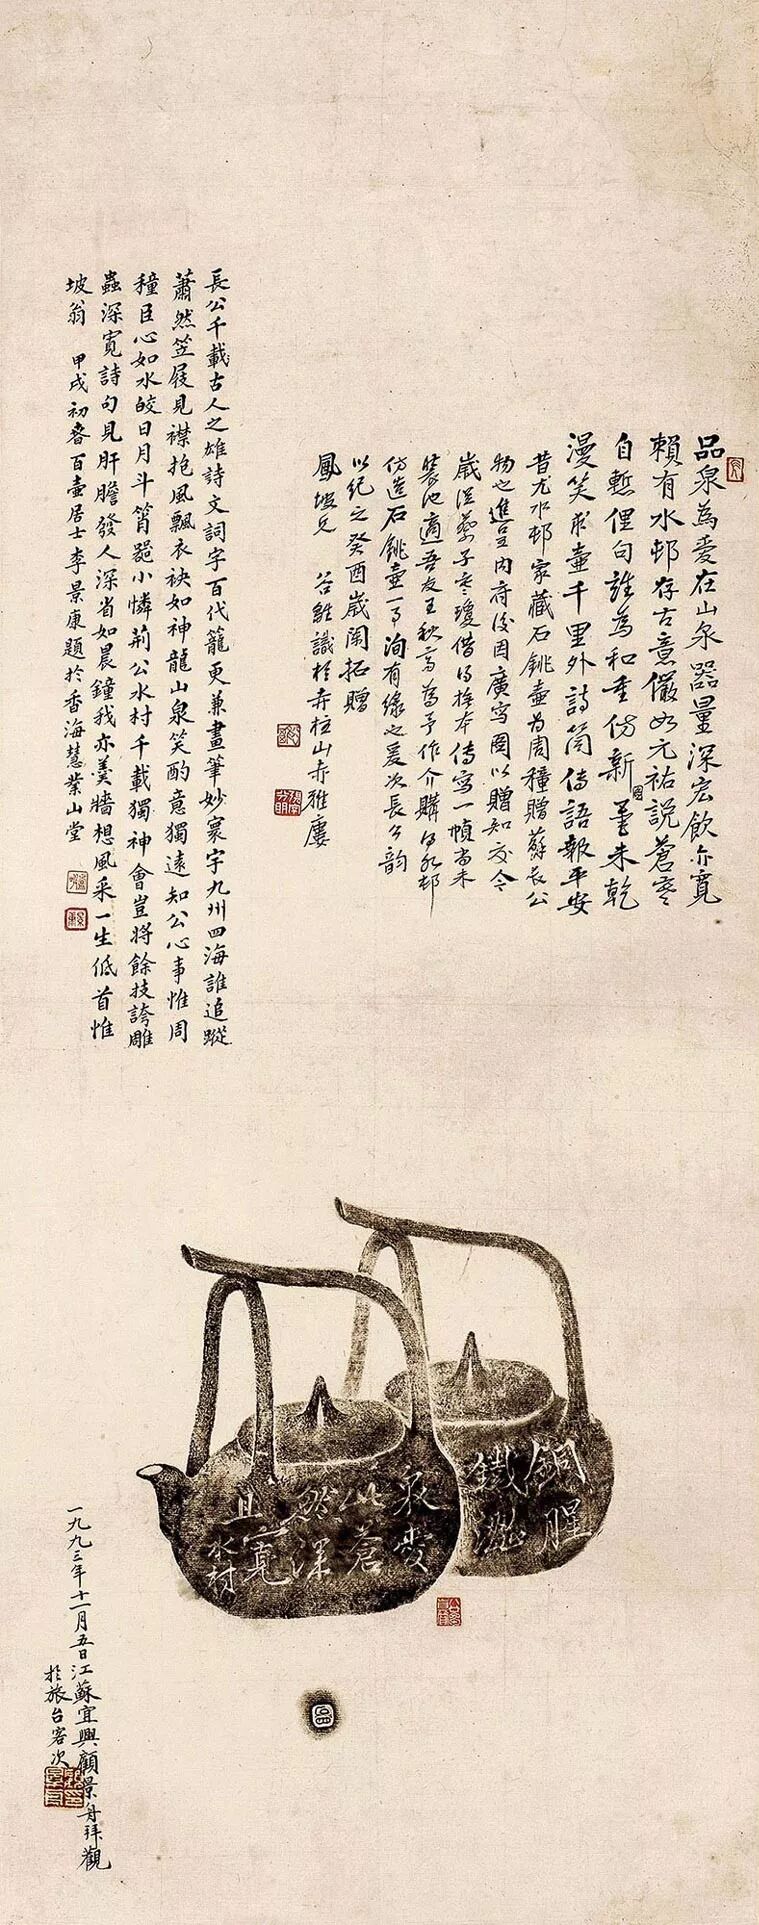 品泉為愛在山泉器量深宏飲亦寬
賴有水邨存古意儼如元祐說蒼寒
自慙俚句誰為和重仿新圖墨未乾
漫笑求壷千里外詩筒傳語報平安
昔尤水邨家藏石銚壷為周穜贈蘇長公
物也進呈內府後因廣寫圖以贈知交今
歲從蔡子寒瓊借得拓本傳寫一幀尚未
裝池適吾友王秋
仿造石銚壷一事洵有緣也爰次長公韵
以紀之癸酉歲闌拓贈
鳳坡兄 谷雛識於弄柱山赤雅廔
長公千載古人之雄詩文詞字百代籠更兼畫筆妙寰宇九州四海誰追蹤
蕭然笠屐見襟抱風飄衣袂如神龍山泉笑酌意獨遠知公心事惟周
穜臣心如水皎日月斗筲器小憐荊公水村千載獨神會豈將餘技誇雕
蟲深寬詩句見肝膽發人深省如晨鐘我亦羹牆想風采一生低首惟
坡翁 甲戌初春百壷居士李景康題於香海慧業山堂
銅腥
鐵澀
泉愛
此蒼
然深
且寬
水村
一九九三年十一月五日江蘇宜興顧景舟拜觀
於旅台客次